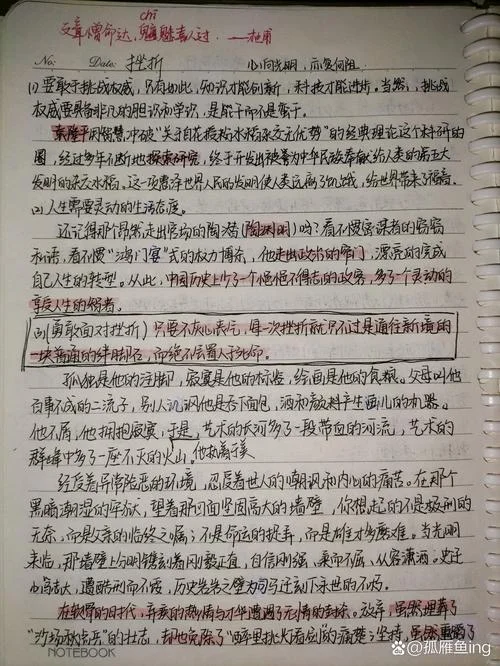 chī
文章憎命达，魑魅喜人过。——杜甫
No: Date: 挫折 心向光明，亦复何阻
(1) 要敢于挑战权威，只有如此，知识才能创新，科技才能进步。当然，挑战
权威要具备非凡的胆识和学识，是能干而不是蛮干。
袁隆平用智慧冲破“关于自花授粉水稻杂交无优势”的经典理论这个科研的
圈，经过多年不断地探索研究，终于开发出被誉为中华民族奉献给人类的第五大
发明的杂交水稻。这一项惠泽世界人民的发明使人类远离了饥饿，给世界带来了福音。
(2) 人生需要灵动的生活态度。
还记得那个昂然走出官场的陶潜(陶渊明)吗？看不惯密谋者的窃窃
私语，看不惯“鸿门宴”式的权力博杀，他走出政治的窄门，漂亮的完成
自己人生的转型。从此，中国历史上少了一个悒悒不得志的政客，多了一个灵动的
享受人生的智者。
(3)(勇敢面对挫折) 只要不灰心丧气，每一次挫折就只不过是通往新境的
一块普通的绊脚石，而绝不会置人于死命。
孤独是他的注脚，寂寞是他的标签，绘画是他的食粮。父母叫他
百事不成的二流子，别人讥讽他是吞下面包，酒和颜料产生画儿的机器。
他不屑，他拥抱寂寞，于是，艺术的长河多了一段带血的河流，艺术的
群峰中多了一座不灭的火山，他执离于美
经受着异常险恶的环境，忍受着世人的嘲讽和内心的痛苦。在那个
黑暗潮湿的牢狱，望着那四面坚固高大的墙壁，你想起的不是极刑的
无奈，而是父亲的临终之嘱；不是命运的捉弄，而是雄才多磨难。当光明
来临，那墙壁上分明镌刻着刚毅正直，自信刚强，柔而不屈、从容潇洒。史迁
心高志大，遭酷刑而不馁，历史岩岩之壁为司马迁刻下永世的不朽。
在软骨的时代，弃疾的热情与才华遭遇了无情的封杀。放弃，虽然埋葬了
“沙场秋点兵”的壮志，却也免除了“醉里挑灯看剑”的痛楚；坚持，虽然重蹈了
NOTEBOOK
@孤雁鱼ing